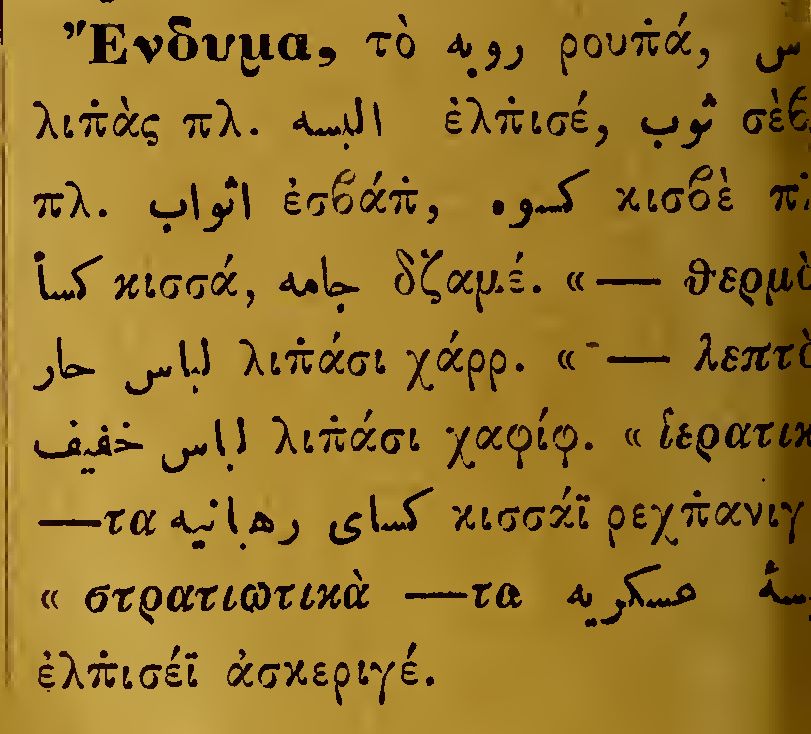 Ἔνδυμα, τὸ روبه ρουπ̇ά,
λιπ̇ὰς πλ. البسه ἐλπ̇ισέ, ثوب σὲϐ
πλ. اثواب ἐσϐάπ̇, كسوه κισϐὲ
كسأ κισσά, جامه δζαμέ. « — θερμὸ
لباس حار λιπ̇άσι χάρρ. « — λεπτὸ
لباس خفيف λιπ̇άσι χαφίφ. « ἱερατικ
—τα كساى رهبانيه κισσάϊ ρεχπ̇ανιγ
« στρατιωτικὰ —τα عسكريه
ἐλπ̇ισέϊ ἀσκεριγέ.